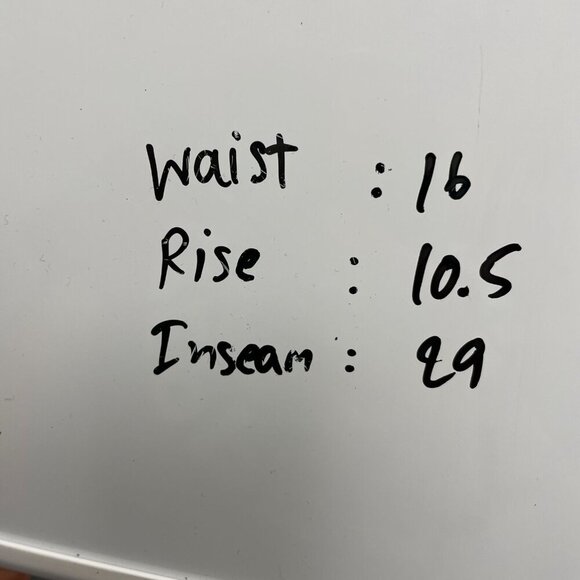 Waist : 16
Rise : 10.5
Inseam : 29